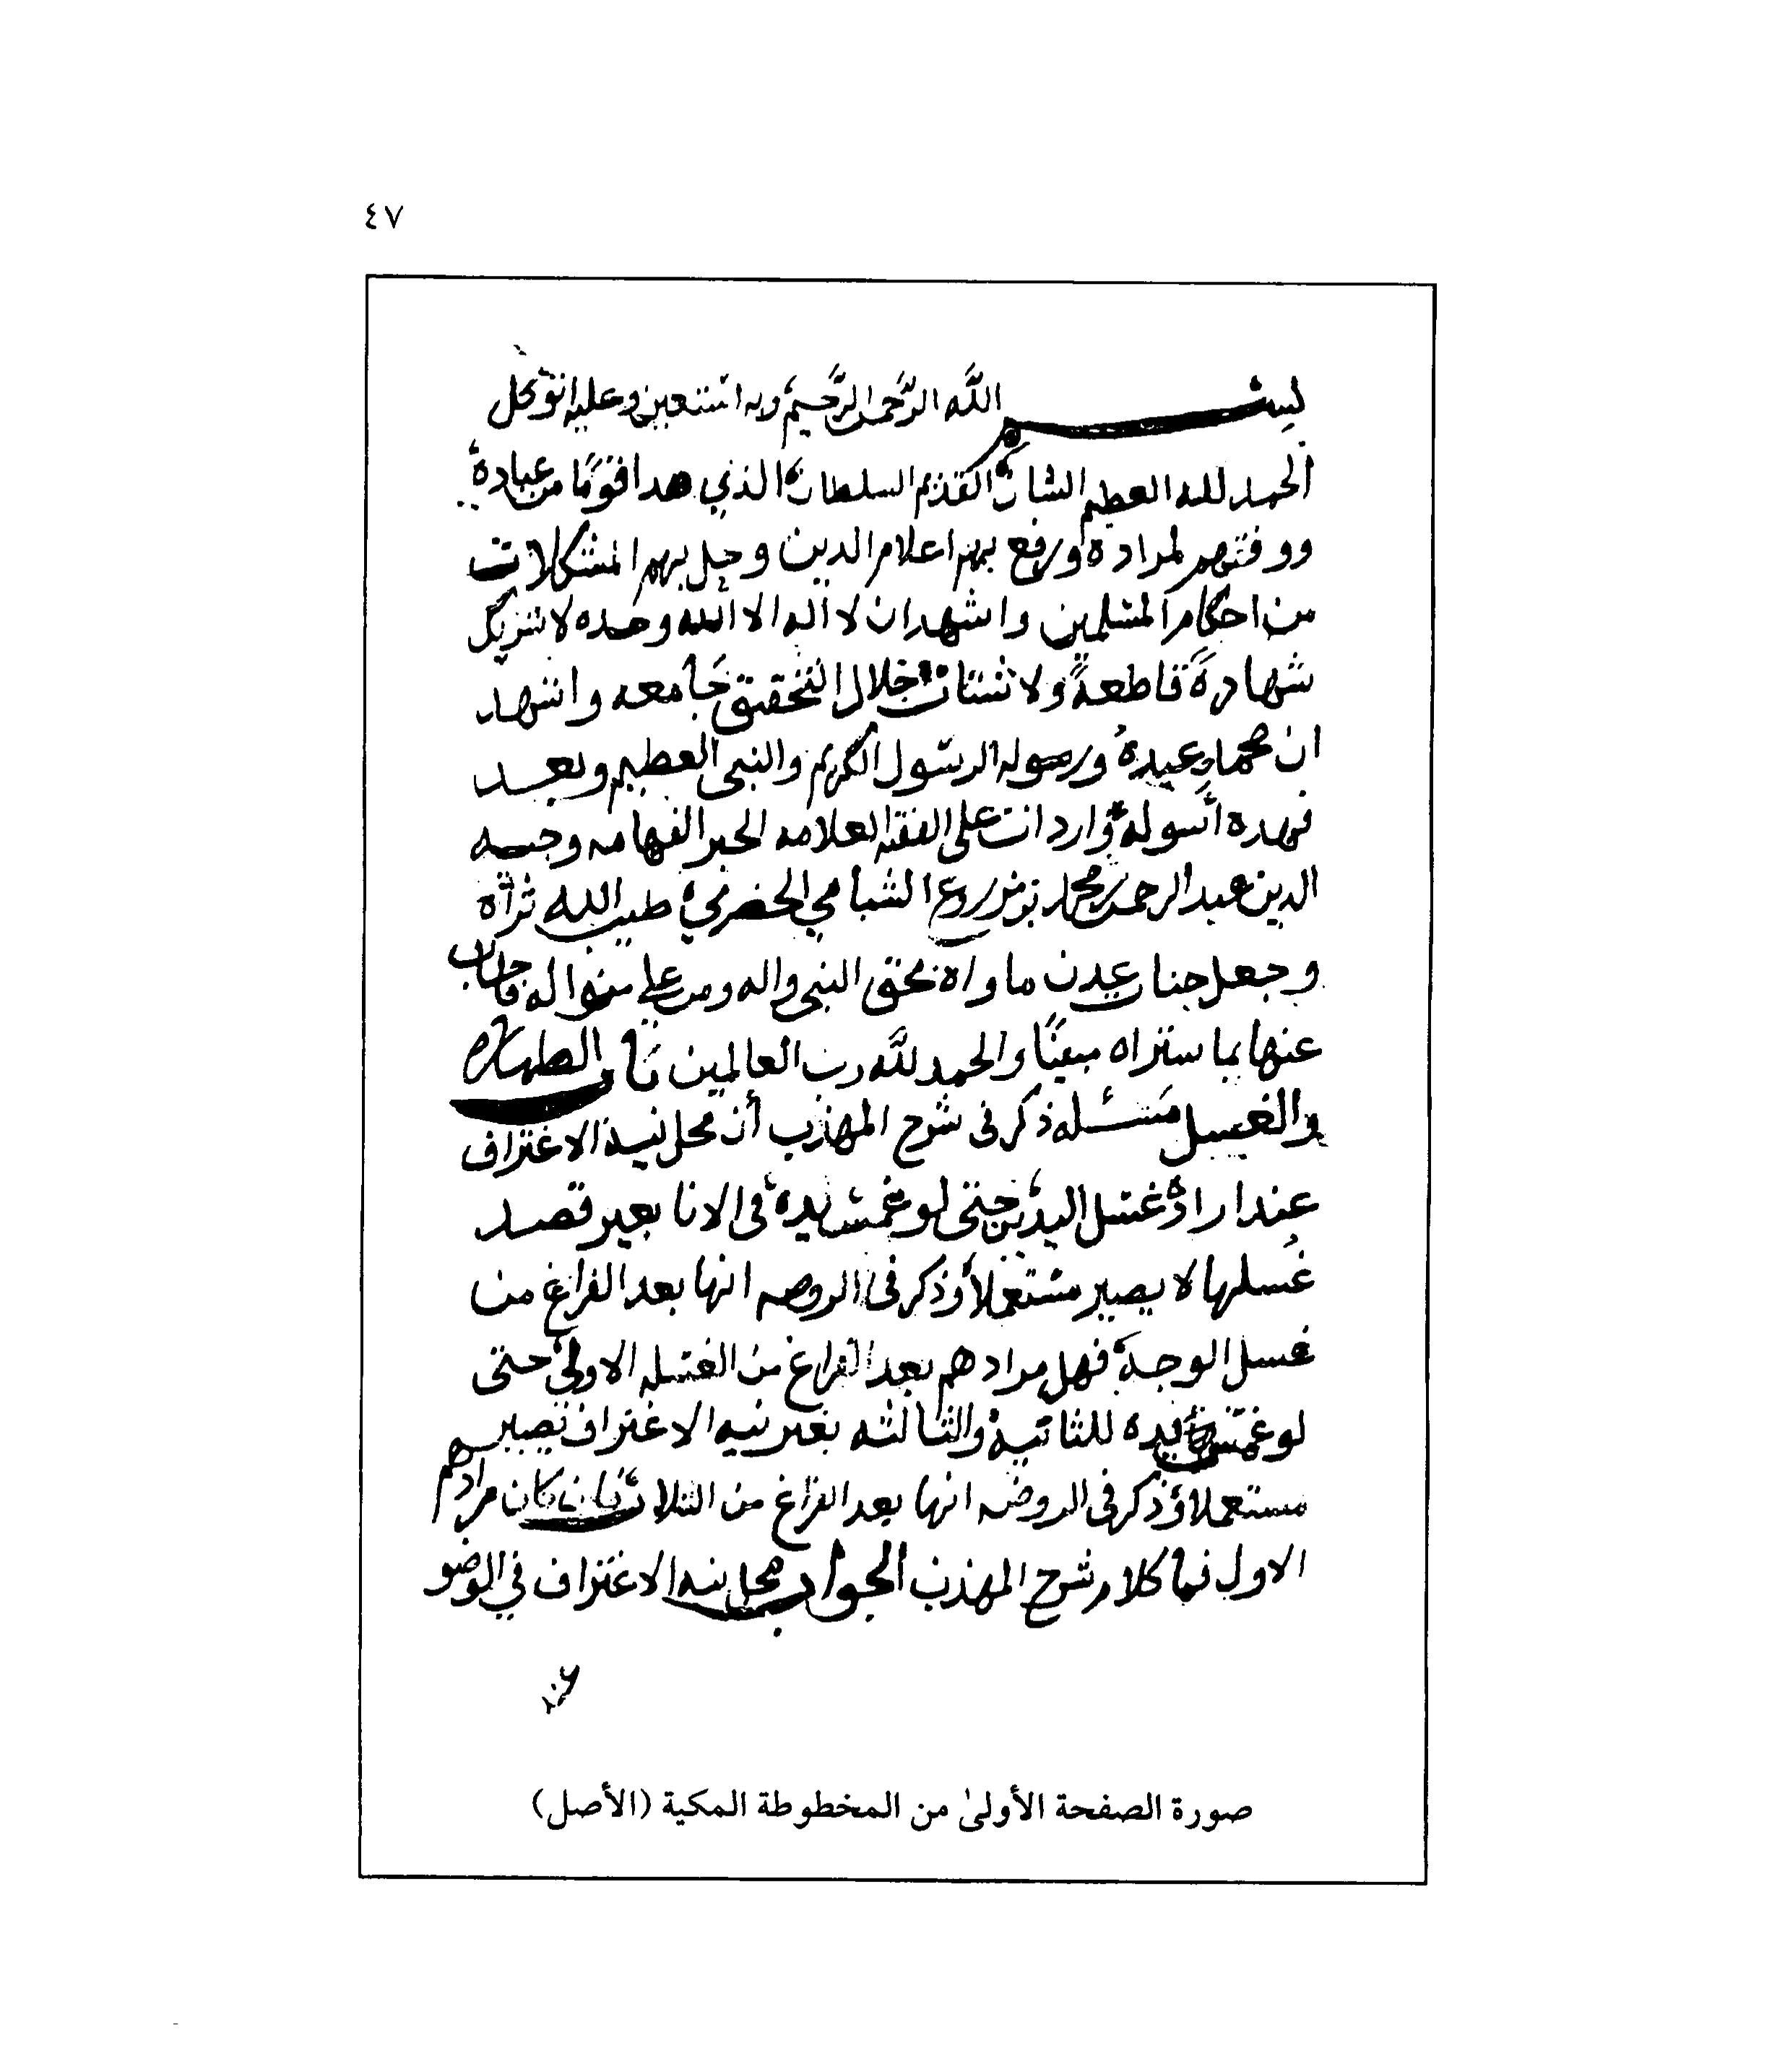 ٤٧
بسم الله الرحمن الرحيم وبه استعين وعليه اتوكل
الحمد لله العظيم الشان القديم السلطان الذي هدا قوما من عباده
ووفقهم لمراده ورفع بهم اعلام الدين وحل بهم المشكلات
من احكام المسلمين واشهد ان لا اله الا الله وحده لا شريك
شهادة قاطعة ولاشتات خلال التحقيق جامعه واشهد
ان محمدا عبده ورسوله الرسول الكريم والنبي العظيم وبعد
فهذه أسوله واردات على الفقيه العلامه الحبر الفهامه وجيه
الدين عبد الرحمن بن محمد بن مزروع الشبامي الحضرمي طيب الله ثراه
وجعل جنات عدن ماواه بحق النبي واله ومن على منواله فاجاب
عنها بما ستراه مبينا والحمد لله رب العالمين باب الطهاره
والغسل مسئله ذكر فى شرح المهذب أن محل نية الاغتراف
عند ارادة غسل اليدين حتى لو غمس يده فى الانا بغير قصد
غسلها لا يصير مستعملا وذكر فى الروضه انها بعد الفراغ من
غسل الوجه فهل مرادهم بعد الفراغ من الغسله الاولى حتى
لو غمس يده للثانية والثالثه بغير نيه الاغتراف تصير
مستعملا وذكر فى الروضه انها بعد الفراغ من الثلاث فان كان مرادهم
الاول فما كلام شرح المهذب الجواب محل نية الاغتراف في الوضو
صورة الصفحة الأولىٰ من المخطوطة المكية (الأصل)